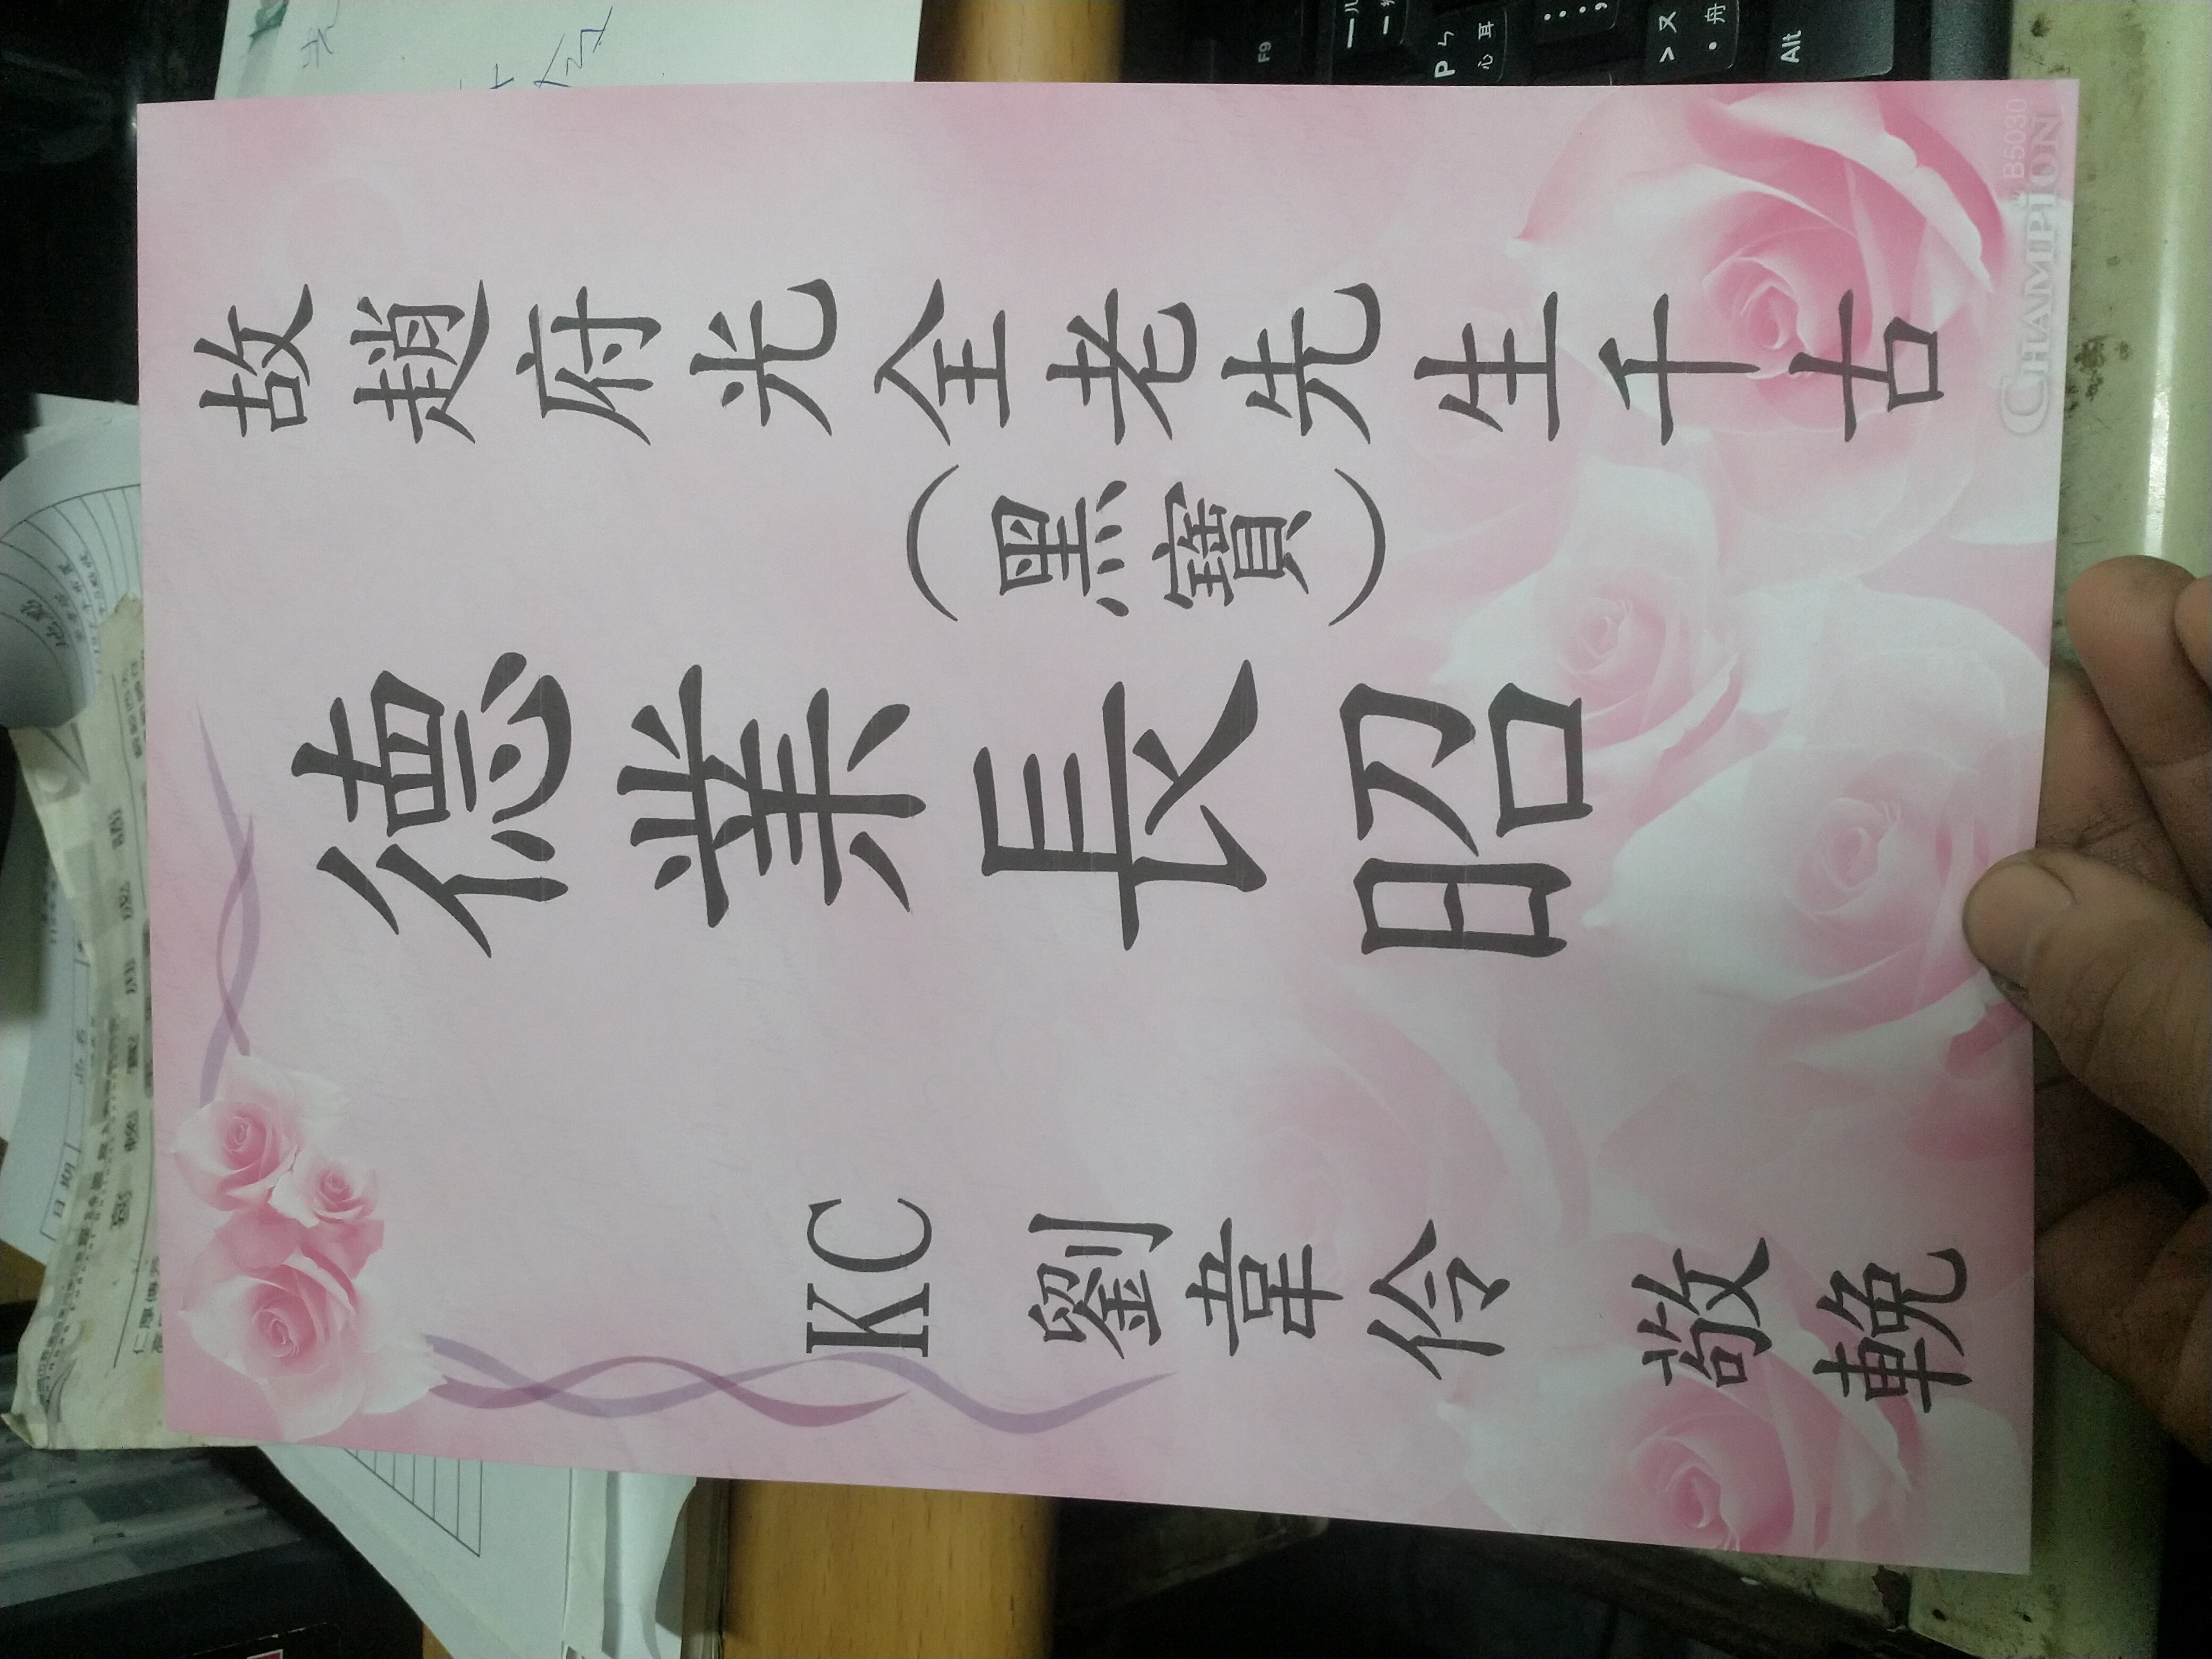 故趙府光全老先生千古
（黑寶）
德業長昭
KC 劉韋伶 敬輓
CHAMPION
B5030
F9
P ㄣ 心 耳
> ㄡ . 舟
Alt